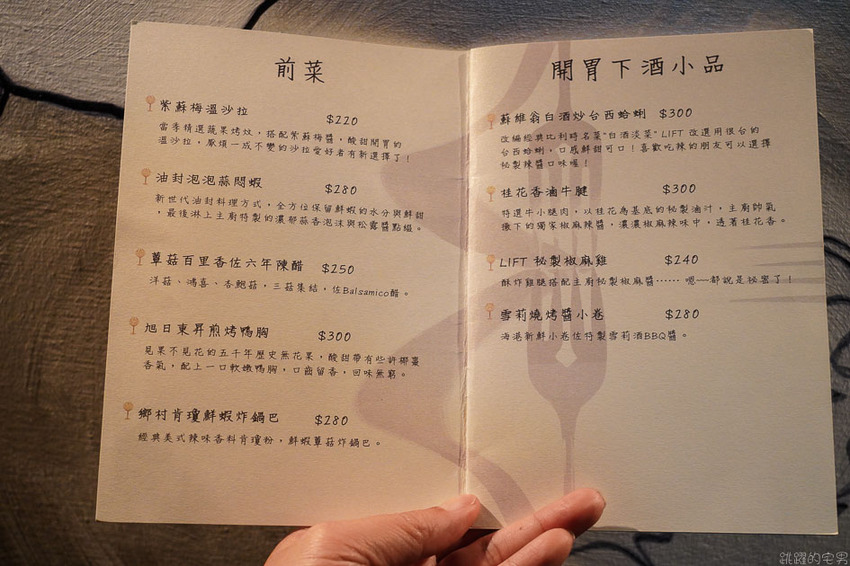 前菜
紫蘇梅溫沙拉 $220
當季精選蔬果烤炆，搭配紫蘇梅醬，酸甜開胃的
溫沙拉，厭煩一成不變的沙拉愛好者有新選擇了！
油封泡泡蒜悶蝦 $280
新世代油封料理方式，全方位保留鮮蝦的水分與鮮甜
，最後淋上主廚特製的濃郁蒜香泡沫與松露醬點綴。
蕈菇百里香佐六年陳醋 $250
洋菇、鴻喜、杏鮑菇，三菇集結，佐Balsamico醋。
旭日東昇煎烤鴨胸 $300
見果不見花的五千年歷史無花果，酸甜帶有些許椰棗
香氣，配上一口軟嫩鴨胸，口齒留香，回味無窮。
鄉村肯瓊鮮蝦炸鍋巴 $280
經典美式辣味香料肯瓊粉，鮮蝦蕈菇炸鍋巴。
開胃下酒小品
蘇維翁白酒炒台西蛤蜊 $300
改編經典比利時名菜"白酒淡菜" LIFT 改選用很台的
台西蛤蜊，口感鮮甜可口！喜歡吃辣的朋友可以選擇
秘製辣醬口味喔！
桂花香滷牛腱 $300
特選牛小腿肉，以桂花為基底的秘製滷汁，主廚帥氣
撒下的獨家椒麻辣醬，濃濃椒麻辣味中，透著桂花香。
LIFT 秘製椒麻雞 $240
酥炸雞腿搭配主廚秘製椒麻醬⋯⋯ 嗯~~都說是秘密了！
雪莉燒烤醬小卷 $280
海港新鮮小卷佐特製雪莉酒BBQ醬。
跳躍的宅男